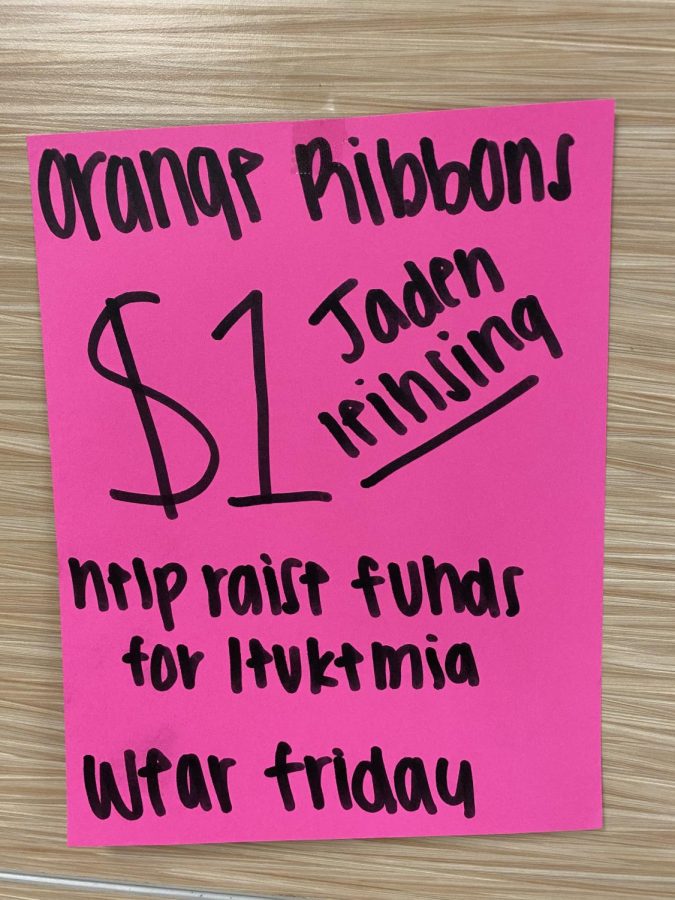 Orange Ribbons
$1
Jaden
leinsing
help raise funds
for leukemia
wear friday